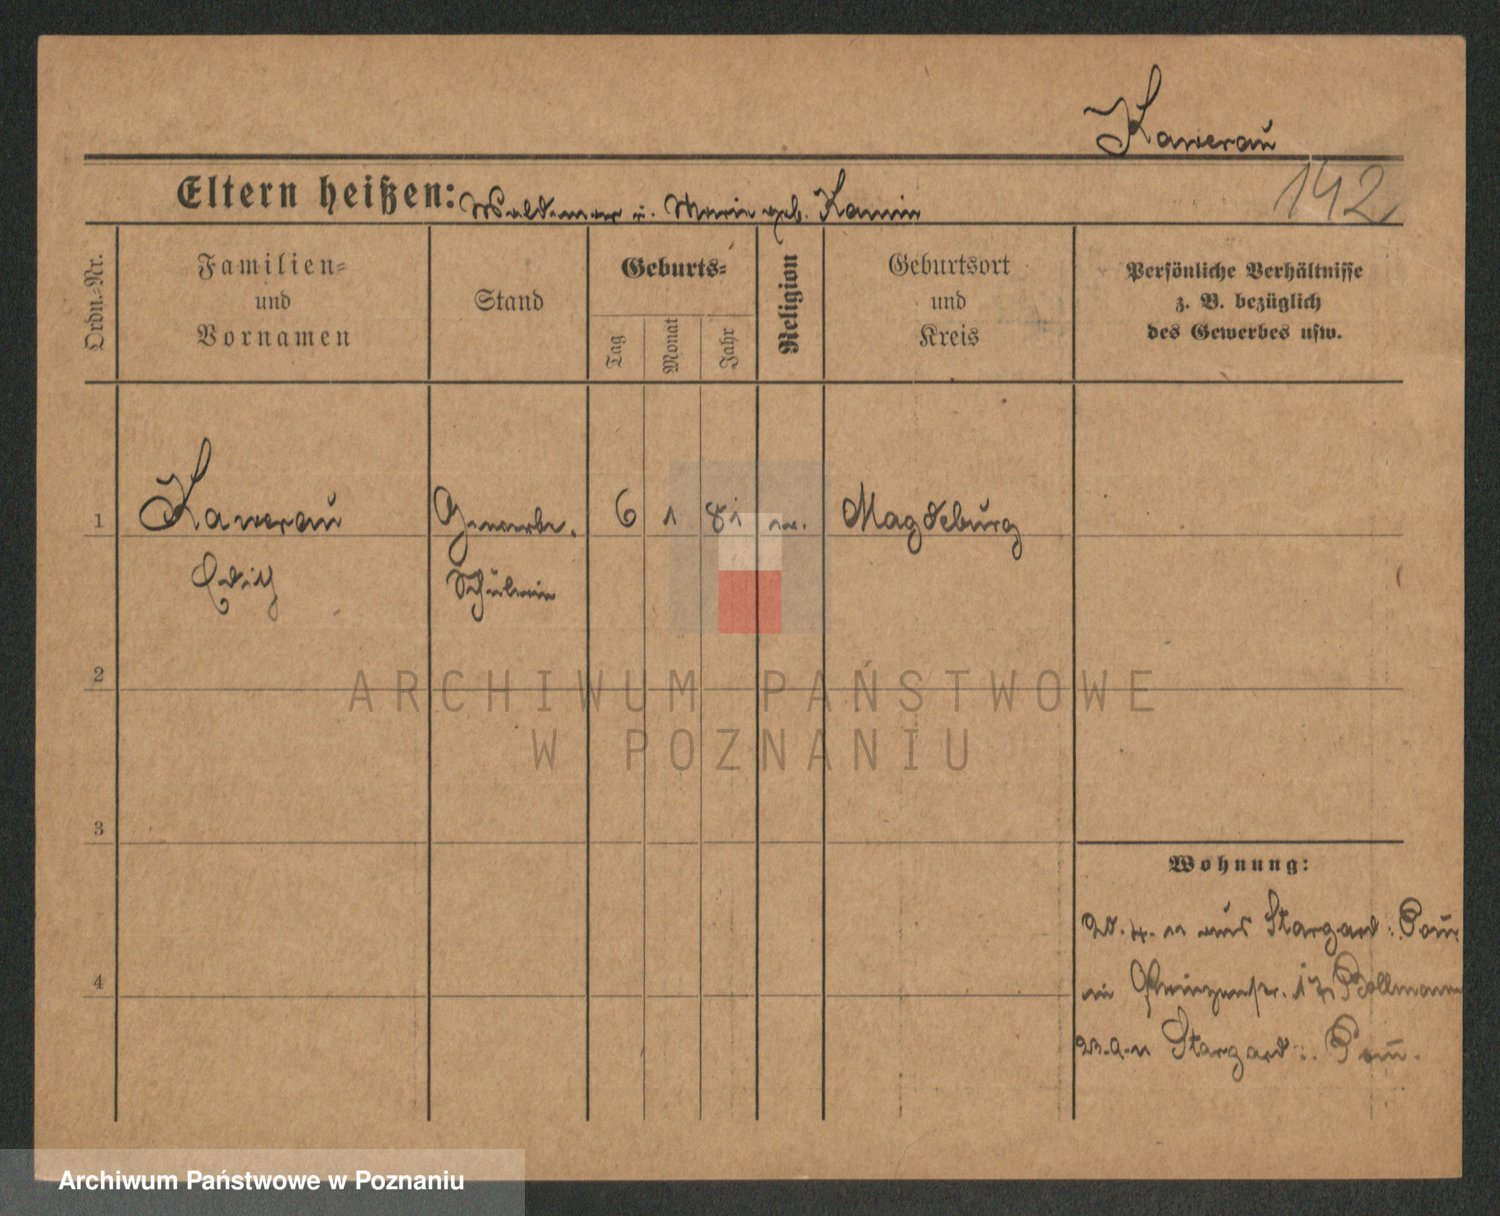 Kawerau
142
Eltern heißen: Waldemar u. Marie geb. Kamin
Ordn.-Nr.
Familien- und Vornamen
Stand
Geburts-
Tag
Monat
Jahr
Religion
Geburtsort und Kreis
Persönliche Verhältnisse
z. B. bezüglich
des Gewerbes usw.
1 Kawerau Gewerbe- 6 1 81 Magdeburg
Edith Schülerin
2
ARCHIWUM PAŃSTWOWE
W POZNANIU
3
Wohnung:
20. 4. 11 aus Stargard i. Pom
4
Prinzenstr. Bollmann
Stargard i. Pom.
Archiwum Państwowe w Poznaniu